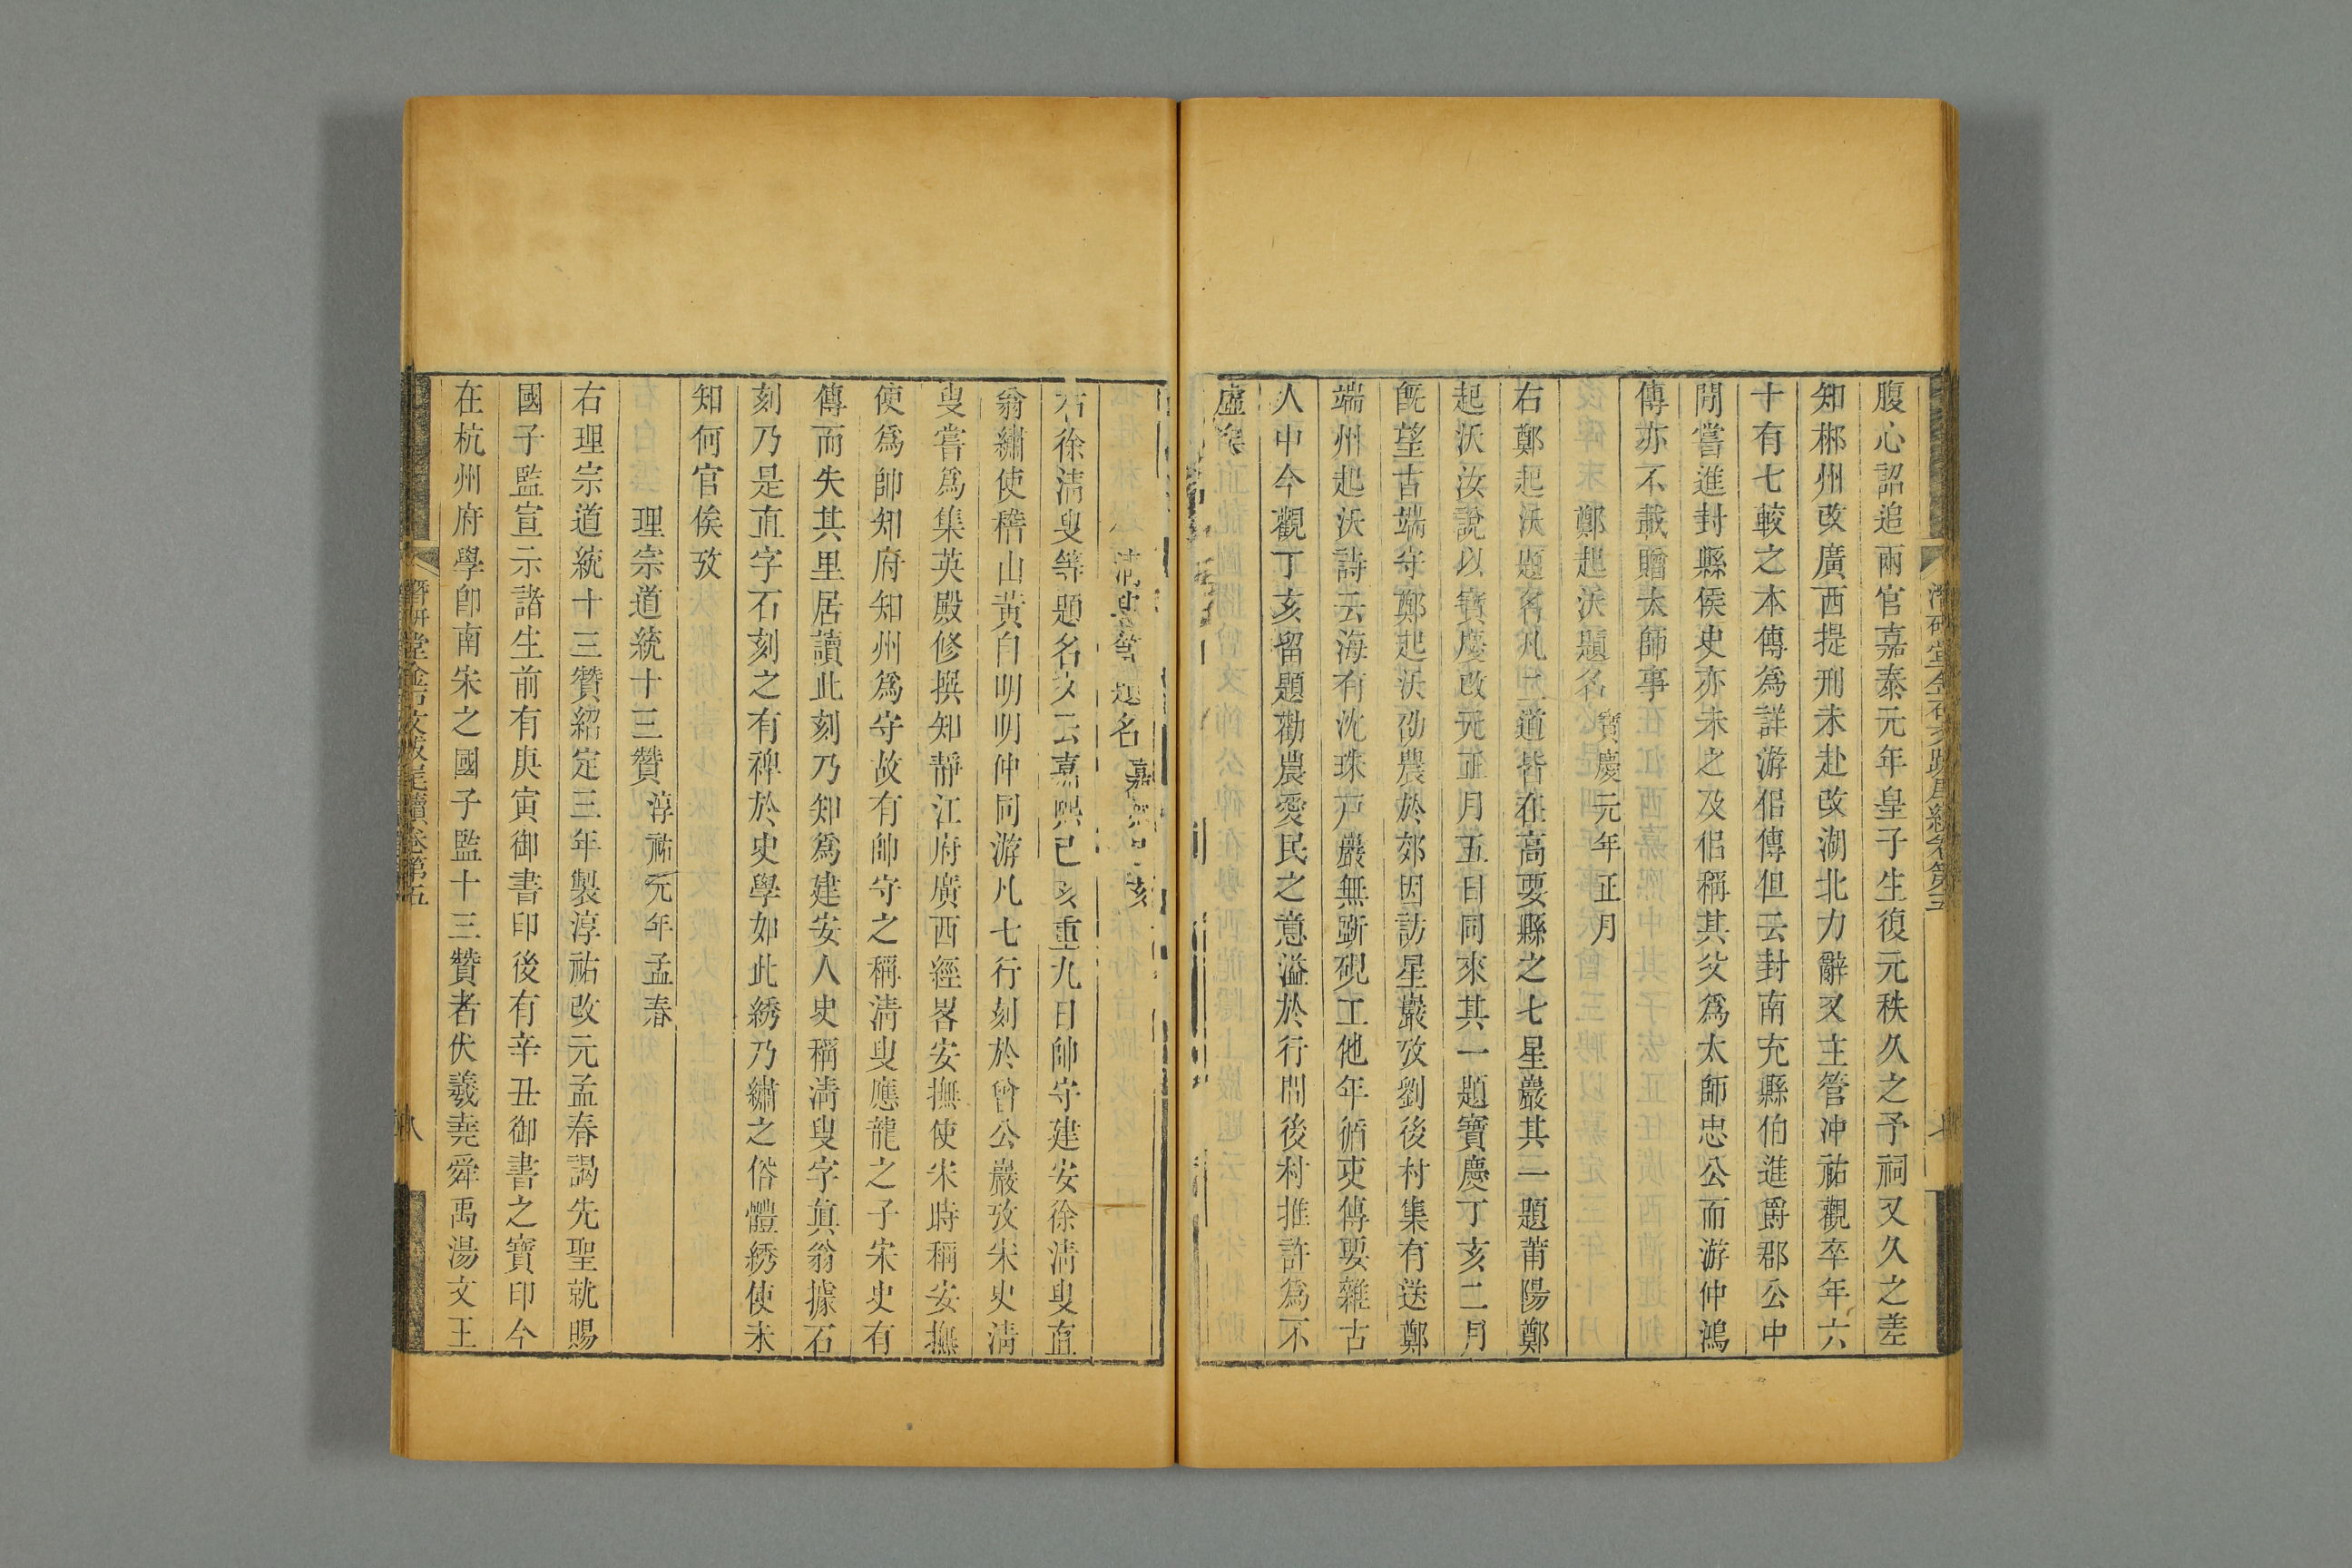 腹心詔追兩官嘉泰元年皇子生復元秩久之予祠又久之差
知郴州改廣西提刑未赴改湖北力辭又主管沖祐觀卒年六
十有七較之本傳爲詳游侣傳但云封南充縣伯進爵郡公中
閒嘗進封縣侯史亦未之及侣稱其父爲太師忠公而游仲鴻
傳亦不載贈太師事
鄭起沃題名 寶慶元年正月
右鄭起沃題名凡二道皆在高要縣之七星巖其一題莆陽鄭
起沃汝說以寶慶改元正月五日同來其一題寶慶丁亥二月
旣望古端守鄭起沃劭農於郊因訪星巖攷劉後村集有送鄭
端州起沃詩云海有沈珠戸巖無斲硯工他年循吏傳要雜古
人中今觀丁亥留題勸農愛民之意溢於行閒後村推許爲不
虛矣
潛研堂金石文跋尾續卷第五
七
清叟等題名 嘉熙己亥
右徐清叟等題名文云嘉熙己亥重九日帥守建安徐清叟直
翁繡使楷山黃自明明仲同游凡七行刻於曾公巖攷宋史清
叟嘗爲集英殿修撰知靜江府廣西經畧安撫使宋時稱安撫
使爲帥知府知州爲守故有帥守之稱清叟應龍之子宋史有
傳而失其里居讀此刻乃知爲建安人史稱清叟字直翁據石
刻乃是直字石刻之有裨於史學如此綉乃繡之俗體綉使未
知何官俟攷
理宗道統十三贊 淳祐元年孟春
右理宗道統十三贊紹定三年製淳祐改元孟春謁先聖就賜
國子監宣示諸生前有庚寅御書印後有辛丑御書之寶印今
在杭州府學卽南宋之國子監十三贊者伏羲堯舜禹湯文王
潛研堂金石文跋尾續卷第五
八